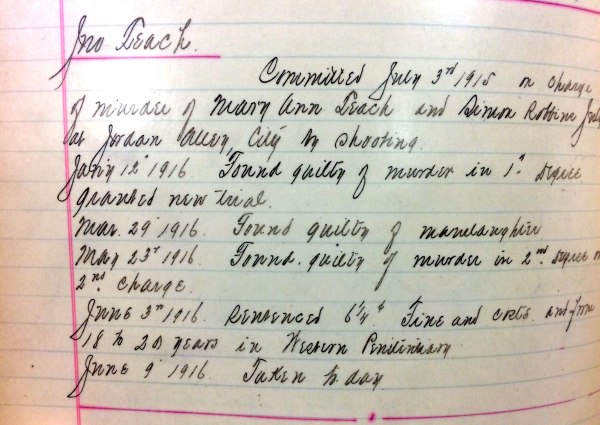 Jno Leach.
Committed July 3rd 1915 on charge
of murder of Mary Ann Leach and Simon Robbins July
at Jordan Alley, City by shooting.
Jan'y 12" 1916 Found guilty of murder in 1" degree
granted new trial.
Mar. 29' 1916. Found guilty of manslaughter
May 23d 1916. Found guilty of murder in 2nd degree on
2nd charge.
June 3rd 1916. Sentenced 6¼¢ Fine and costs and from
18 to 20 years in Western Penitentiary
June 9' 1916 Taken to day